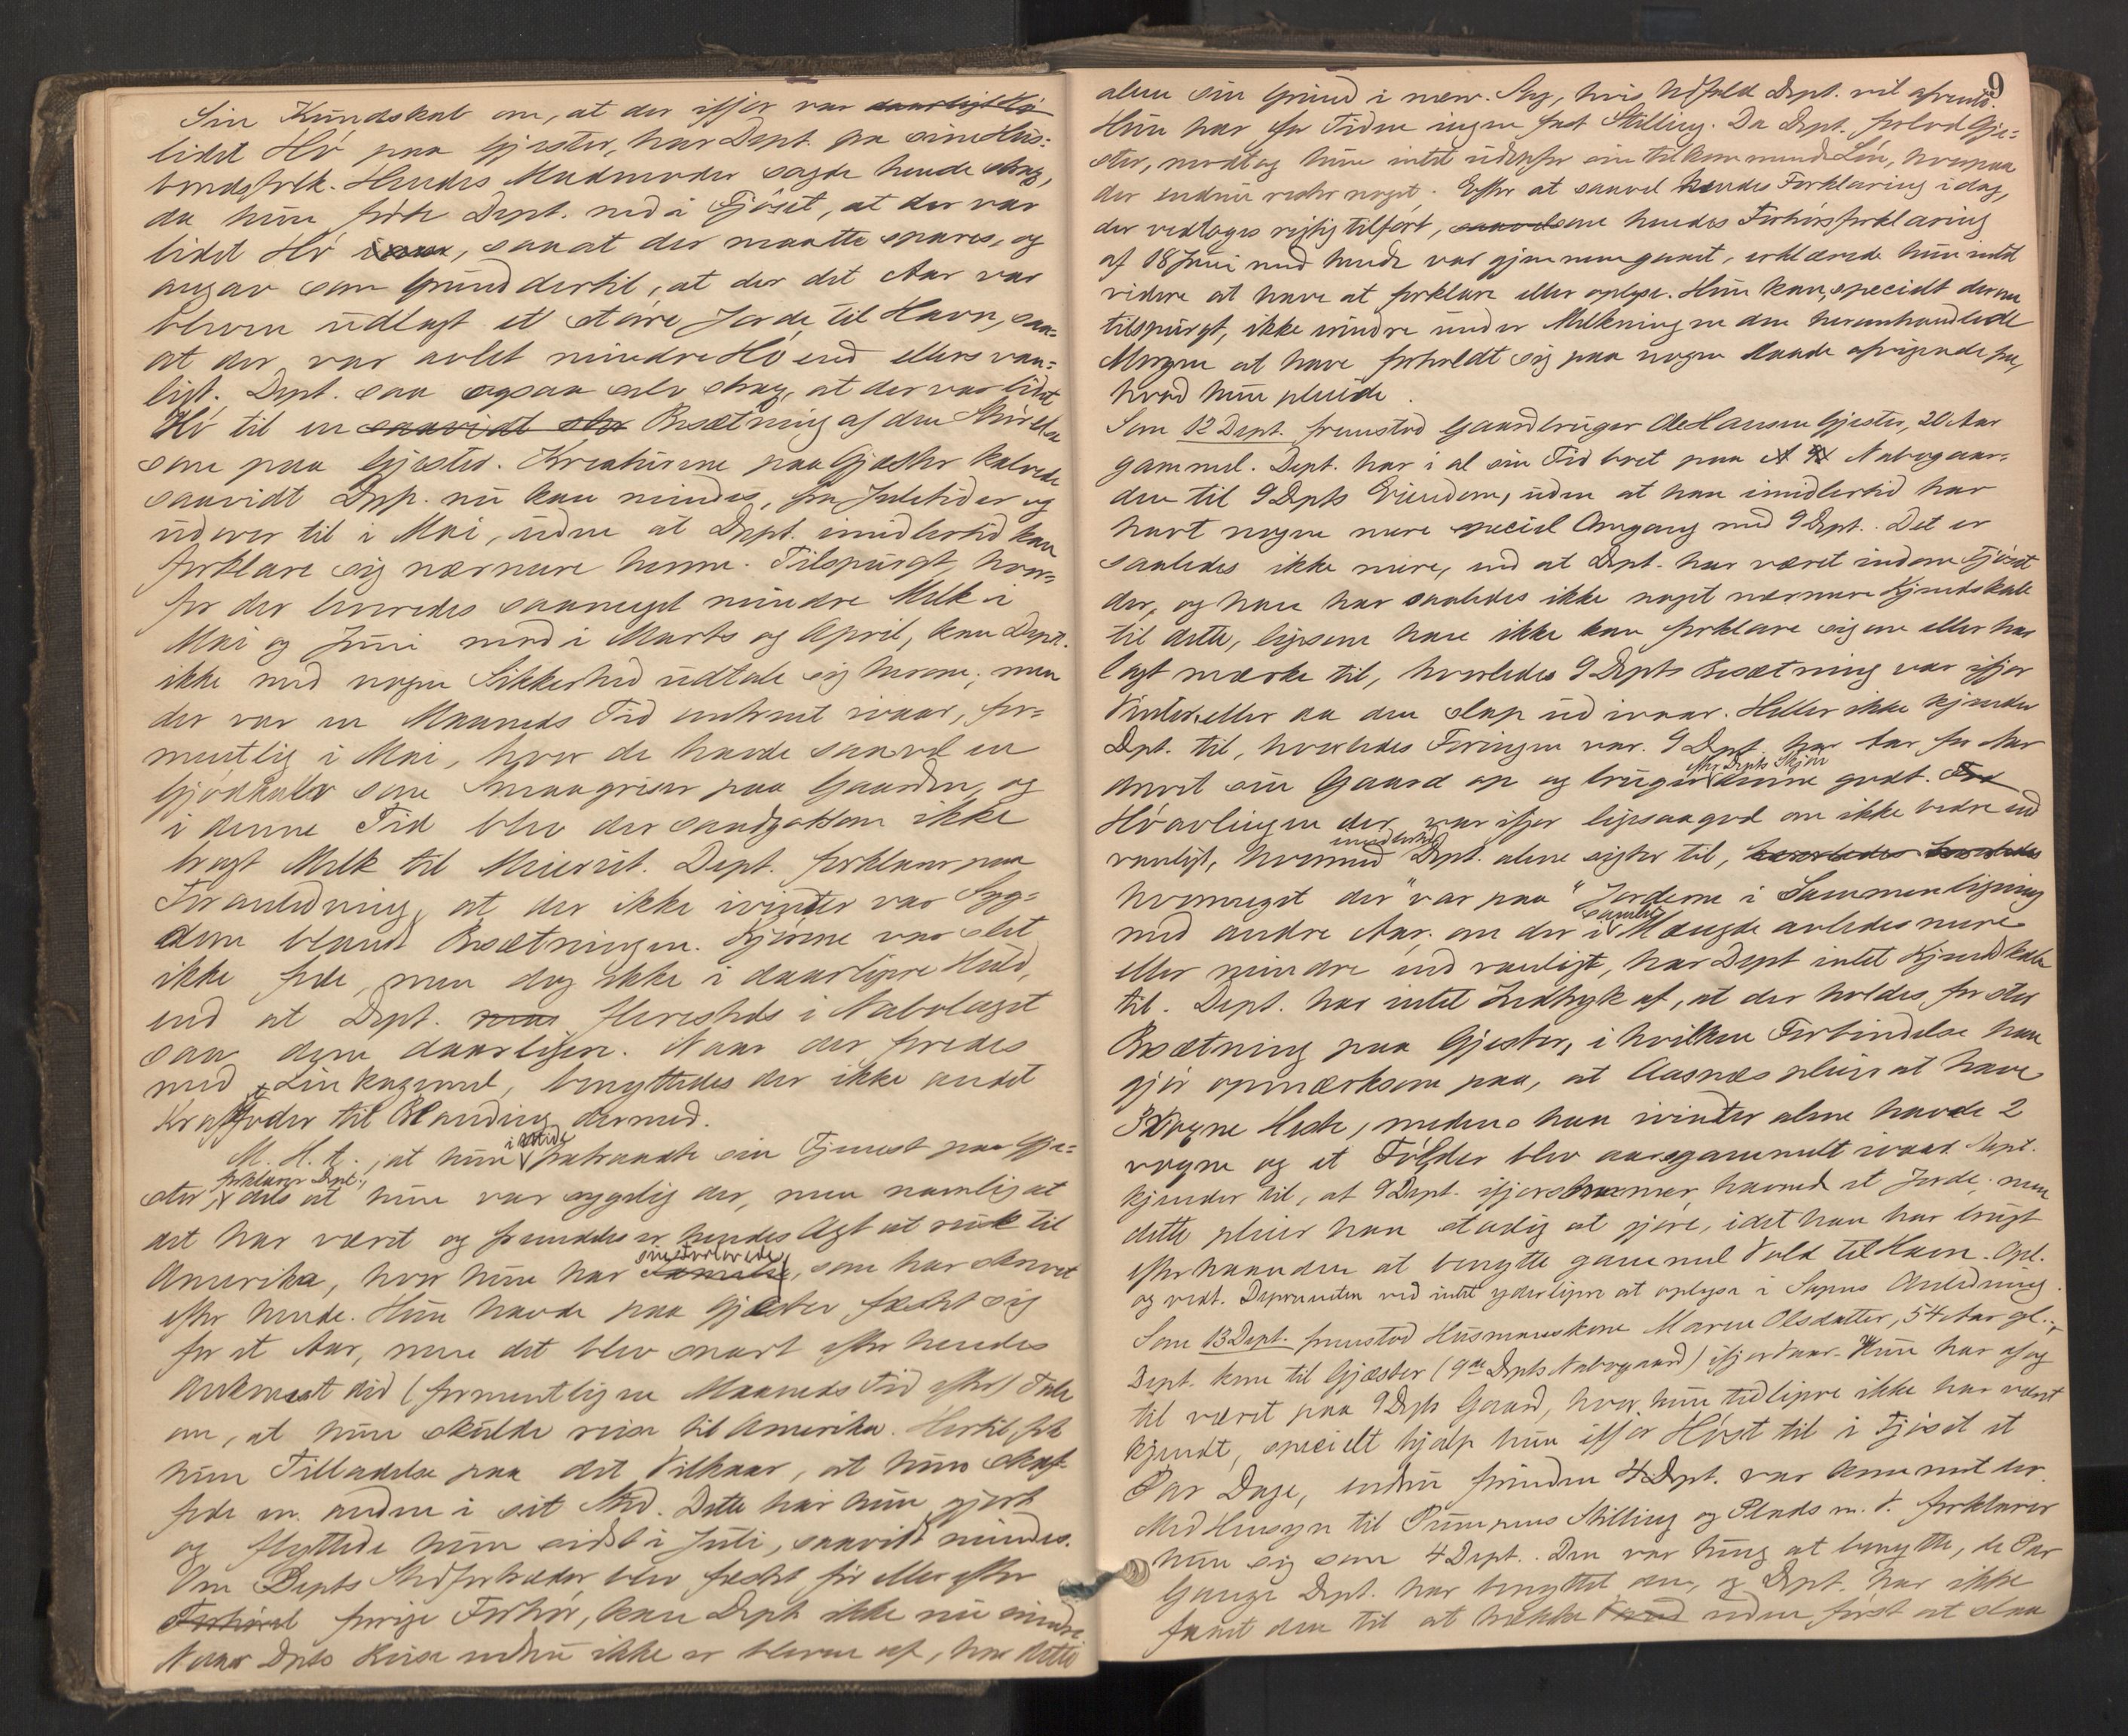 Sin Kundskab om, at der ifjor var daarligt Hö
lidet Hö paa Gjester, har Dept. fra sine Hus=
bondsfolk. Hendes Madmoder sagde hende strax,
da hun fulgte Dept. ned i Fjöset, at der var
lidet Hö, saaat der maatte spares, og
angav som Grund dertil, at der det Aar var
bleven udlagt et större Jorde til Havn, saa=
at der var avlet mindre Hö end ellers van=
ligt. Dept. saa ogsaa selv strax, at der var lidet
Hö til en saavidt stor Besætning af den Störrelse
som paa Gjester. Kreaturene paa Gjester kalvede
saavidt Dep. nu kan mindes, fra Juletider og
udover til i Mai, uden at Dept. imidlertid kan
forklare sig nærmere herom. Tilspurgt, hvor=
for der leveredes saameget mindre Melk i
Mai og Juni mod i Marts og April, kan Dept.
ikke med nogen Sikkerhed udtale sig herom; men
der var en Maaneds Tid omtrent ivaar, for=
mentlig i Mai, hvor de havde saavel en
Gjödkalv som Smaagriser paa Gaarden, og
i denne Tid blev der saagodtsom ikke
bragt Melk til Meieriet. Dept. forklarer paa
Foranledning, at der ikke ivinter var Syg=
dom blandt Besætningen. Kjörene var slet
ikke fede, men dog ikke i daarligere Huld,
end at Dept. flerestids i Nabolaget
saa dem daarligere. Naar der foredes
med Linkagemel, benyttedes der ikke andet
Kraftfoder til Blanding dermed.
M. H. t., at hun i Utide fratraadte sin Tjenest paa Gje=
ster, forklarer Dept., dels at hun var sygelig der, men navnlig at
det har været og fremdeles er hendes Agt at reise til
Amerika, hvor hun har Familie sin Forlovede, som har skrevet
efter hende. Hun havde paa Gjester fæstet sig
for et Aar, men det blev snart efter hendes
Ankomst did (formentlig en Maaneds Tid efter) Tale
om, at hun skulde reise til Amerika. Hertil fik
hun Tilladelse paa det Vilkaar, at hun skaf=
fede en anden i sit Sted. Dette har hun gjort
og flyttede hun sidst i Juli, saavidt mindes.
Om Depts Stedfortræder blev fæstet för eller efter
Forhöret forrige Forhör, kan Dept. ikke nu mindes
Naar Depts Reise endnu ikke er bleven af, har dette
9
alene sin Grund i nærv. Sag, hvis Udfald Dept. vil afvente.
Hun har for Tiden ingen fast Stilling. Da Dept. forlod Gje=
ster, modtog hun intet udenfor sin tilkommende Lön, hvorpaa
der endnu rester noget. Efter at saavel hendes Forklaring idag,
der vedtoges rigtig tilfört, saavelsom hendes Forhörsforklaring
af 18 Juni med hende var gjennemgaaet, erklærede hun intet
videre at have at forklare eller oplyse. Hun kan, specielt derom
tilspurgt, ikke erindre under Melkningen den heromhandlede
Morgen at have forholdt sig paa nogen Maade afvigende fra,
hvad hun pleiede.
Som 12 Dept. fremstod Gaardbruger Ole Hansen Gjester, 20 Aar
gammel. Dept. har i al sin Tid boet paa Nabogaar=
den til 9 Depts Eiendom, uden at han imidlertid har
havt nogen mere speciel Omgang med 9 Dept. Det er
saaledes ikke mere, end at Dept. har været indom Fjöset
der, og han har saaledes ikke noget nærmere Kjendskab
til dette, ligesom han ikke kan forklare sig om eller har
lagt mærke til, hvorledes 9 Depts Besætning var ifjor
Vinter, eller da den slap ud ivaar. Heller ikke kjender
Dpt. til, hvorledes Foringen var. 9 Dept. har Aar for Aar
drevet sin Gaard op og bruger efter Depts Skjön denne godt.
Höavlingen der var ifjor ligesaagod om ikke bedre end
vanligt, hvormed imidlertid Dept. alene sigter til,
hvormeget der "var paa" Jorderne i Sammenligning
med andre Aar; om der i samlet Mængde avledes mere
eller mindre end vanligt, har Dept intet Kjendskab
til. Dept. har intet Indtryk af, at der holdes for stor
Besætning paa Gjester, i hvilken Forbindelse han
gjör opmærksom paa, at Aasnæs pleier at have
3 Voxne Heste, medens han ivinter alene havde 2
voxne og et Föl, der blev aarsgammelt ivaar. Dept.
kjender til, at 9 Dept. ifjor Sommer havned et Jorde, men
dette pleier han stadig at gjöre, idet han har brugt
efterhaanden at benytte gammel Vold til Havn. Opl.
og vedt. Deponenten ved intet yderligere at oplyse i Sagens Anledning.
Som 13 Dept. fremstod Husmandskone Maren Olsdatter, 54 Aar gl.
Dept. kom til Gjæster (9de Depts Nabogaard) ifjor Vaar. Hun har af og
til været paa 9 Depts Gaard, hvor hun tidligere ikke har været
kjendt, specielt hjalp hun ifjor Höst til i Fjöset et
Par Dage, endnu förinden 4 Dept. var kommet der.
Med Hensyn til Pumpens Stilling og Plads m. V. forklarer
hun sig som 4 Dept. Den var tung at benytte, de Par
Gange Dept. har benyttet den, og Dept. har ikke
faaet den til at trække Vand uden först at slaa